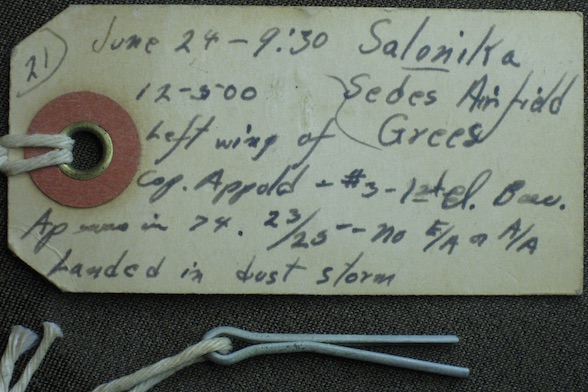 21
June 24 - 9:30 Salonika
12-5-00 Sedes Airfield
Left wing of Grees
Cap. Appold - #3 - 1st El.
Ap in 74. 23/25 -- no E/A or A/A
Landed in dust storm